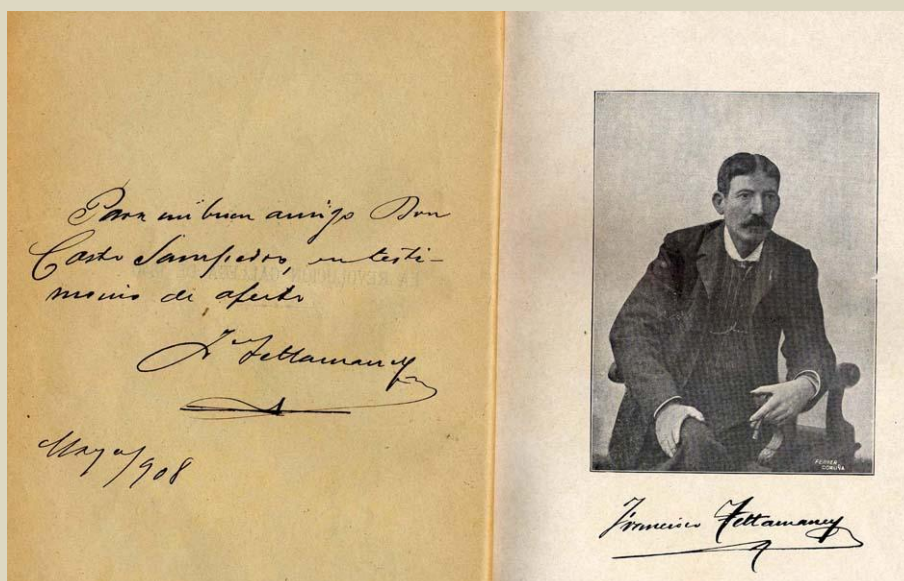 Para mi buen amigo Don
Casto Sampedro en testi-
monio de afecto
Fco Tettamancy
Mayo/908
LA REVOLUCIÓN GALLEGA DE
FERRER
CORUÑA
Francisco Tettamancy